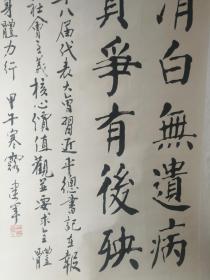 清白無遺病
貪爭有後殃
八届代表大會習近平總書記在報
社會主義核心價值觀並要求全體
身體力行 甲午寒露 建軍